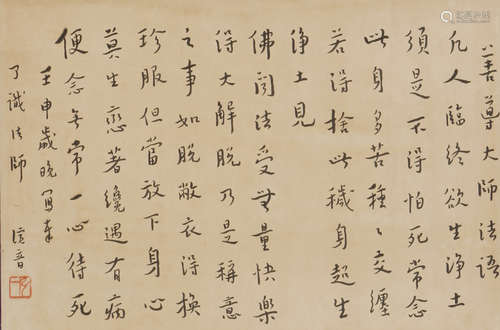 善導大師法語
凡人臨終欲生淨土
須是不得怕死常念
此身多苦種々交纏
若得捨此穢身超生
淨土見
佛聞法受無量快樂
得大解脫乃是稱意
之事如脫敝衣得換
珍服但當放下身心
莫生戀著纔遇有病
便念無常一心待死
壬申歲晚寫奉
了識法師